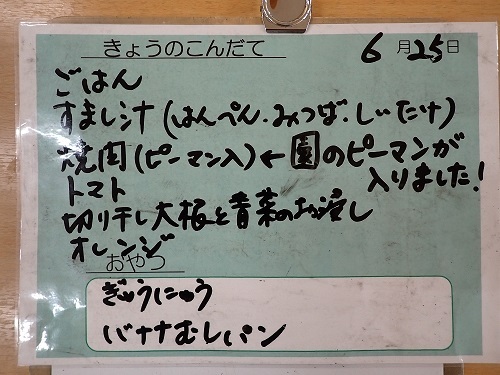 きょうのこんだて 6月25日
ごはん
すまし汁(はんぺん・みつば・しいたけ)
焼肉(ピーマン入)←園のピーマンが
入りました!
トマト
切り干し大根と青菜のお浸し
オレンジ
おやつ
ぎゅうにゅう
バナナむしパン